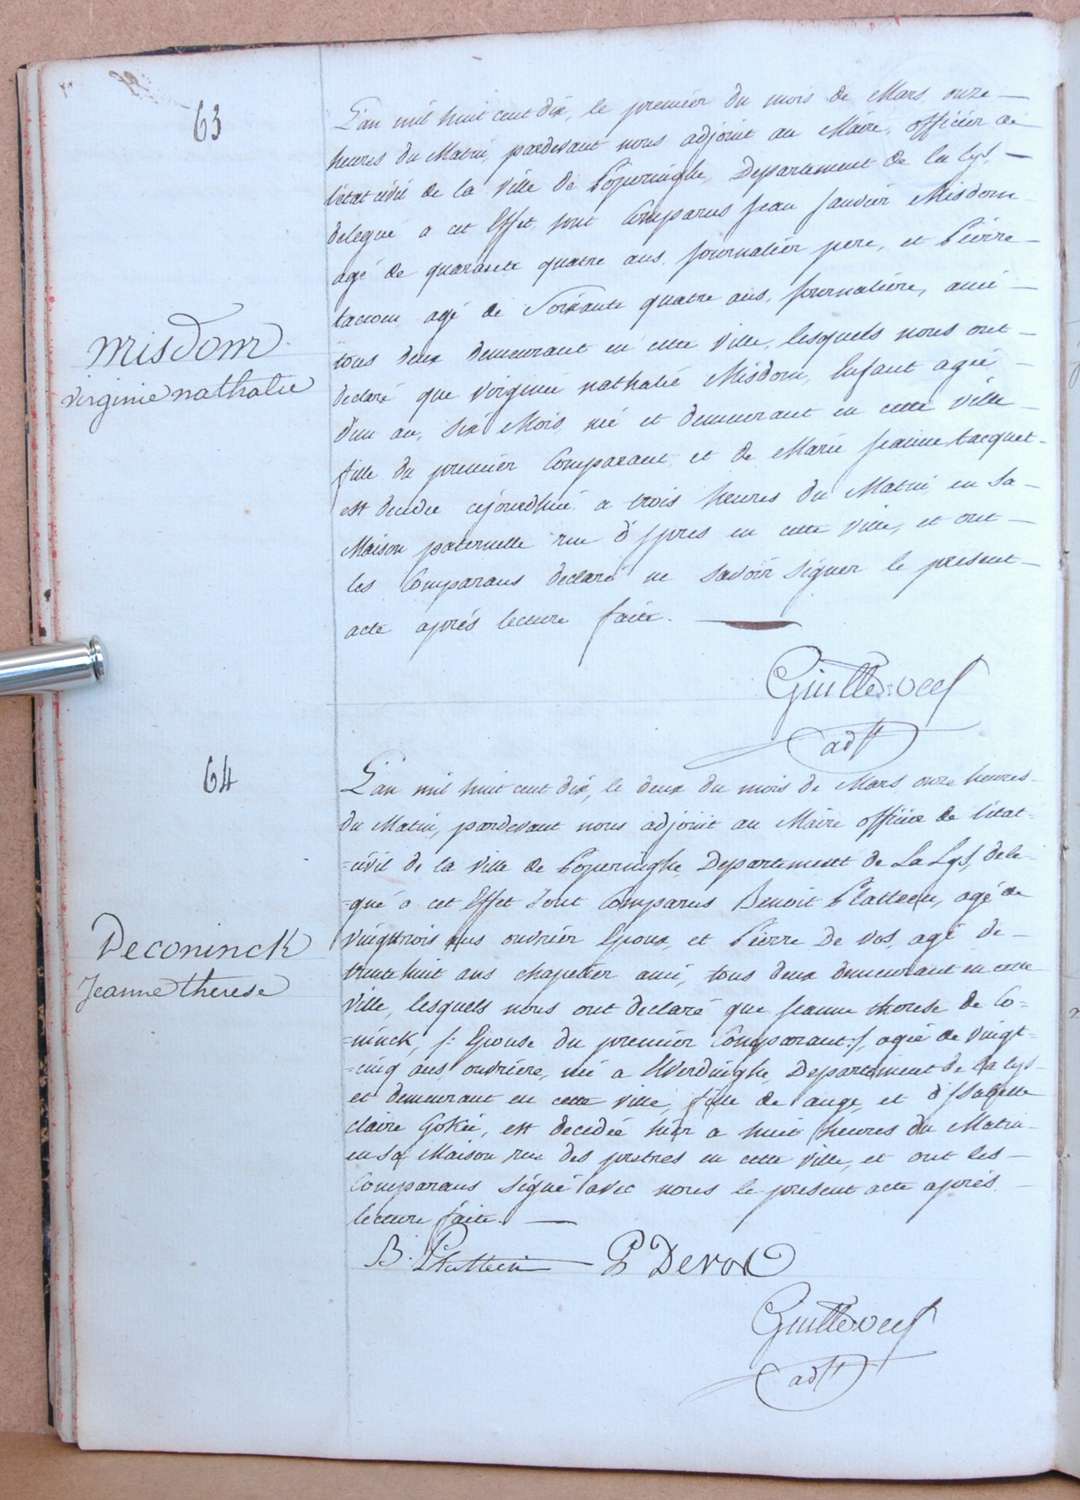 63
L'an mil huit cent dix, le premier du mois de Mars onze
heures du Matin, pardevant nous adjoint au Maire, officier de
l'état civil de la Ville de Poperinghe, Departement de la Lys,
delegué a cet Effet sont Comparus Jean Janvier Misdom
agé de quarante quatre ans, journalier pere, et Pierre
agé de Soixante quatre ans, journaliere, ami
tous deux demeurant en cette ville, lesquels nous ont
declaré que Virginie nathalie Misdom, Enfant agée
d'un an, six Mois, né et demeurant en cette ville
fille du premier Comparant, et de Marie Jeanne tacquet
est decedée cejourdhui a trois heures du Matin en sa
Maison paternelle rue d'Ypres en cette ville, et ont
les Comparans declaré ne savoir signer le present
acte aprés lecture faite.
Misdom
virginie nathalie
adjt
64
L'an mil huit cent dix, le deux du mois de Mars onze heures
du Matin, pardevant nous adjoint au Maire officier de l'état
=civil de la ville de Poperinghe Departement de La Lys, dele=
=gué a cet Effet sont Comparus Benoit agé de
vingttrois ans ouvrier Epoux, et Pierre De vos, agé de
trente huit ans chapelier ami, tous deux demeurant en cette
Ville, lesquels nous ont declaré que Jeanne therese de Co=
=ninck, /: Epouse du premier Comparant:/, agée de vingt
=cinq ans ouvriere, née a Elverdinghe, Departement de la Lys
et demeurant en cette ville, fille de ange, et d'Isabelle
claire est decedée hier a huit heures du Matin
en sa Maison rue des pretres en cette ville, et ont les
Comparans signé avec nous le present acte aprés
lecture faite.
Deconinck
Jeanne therese
B. P Devos
adjt